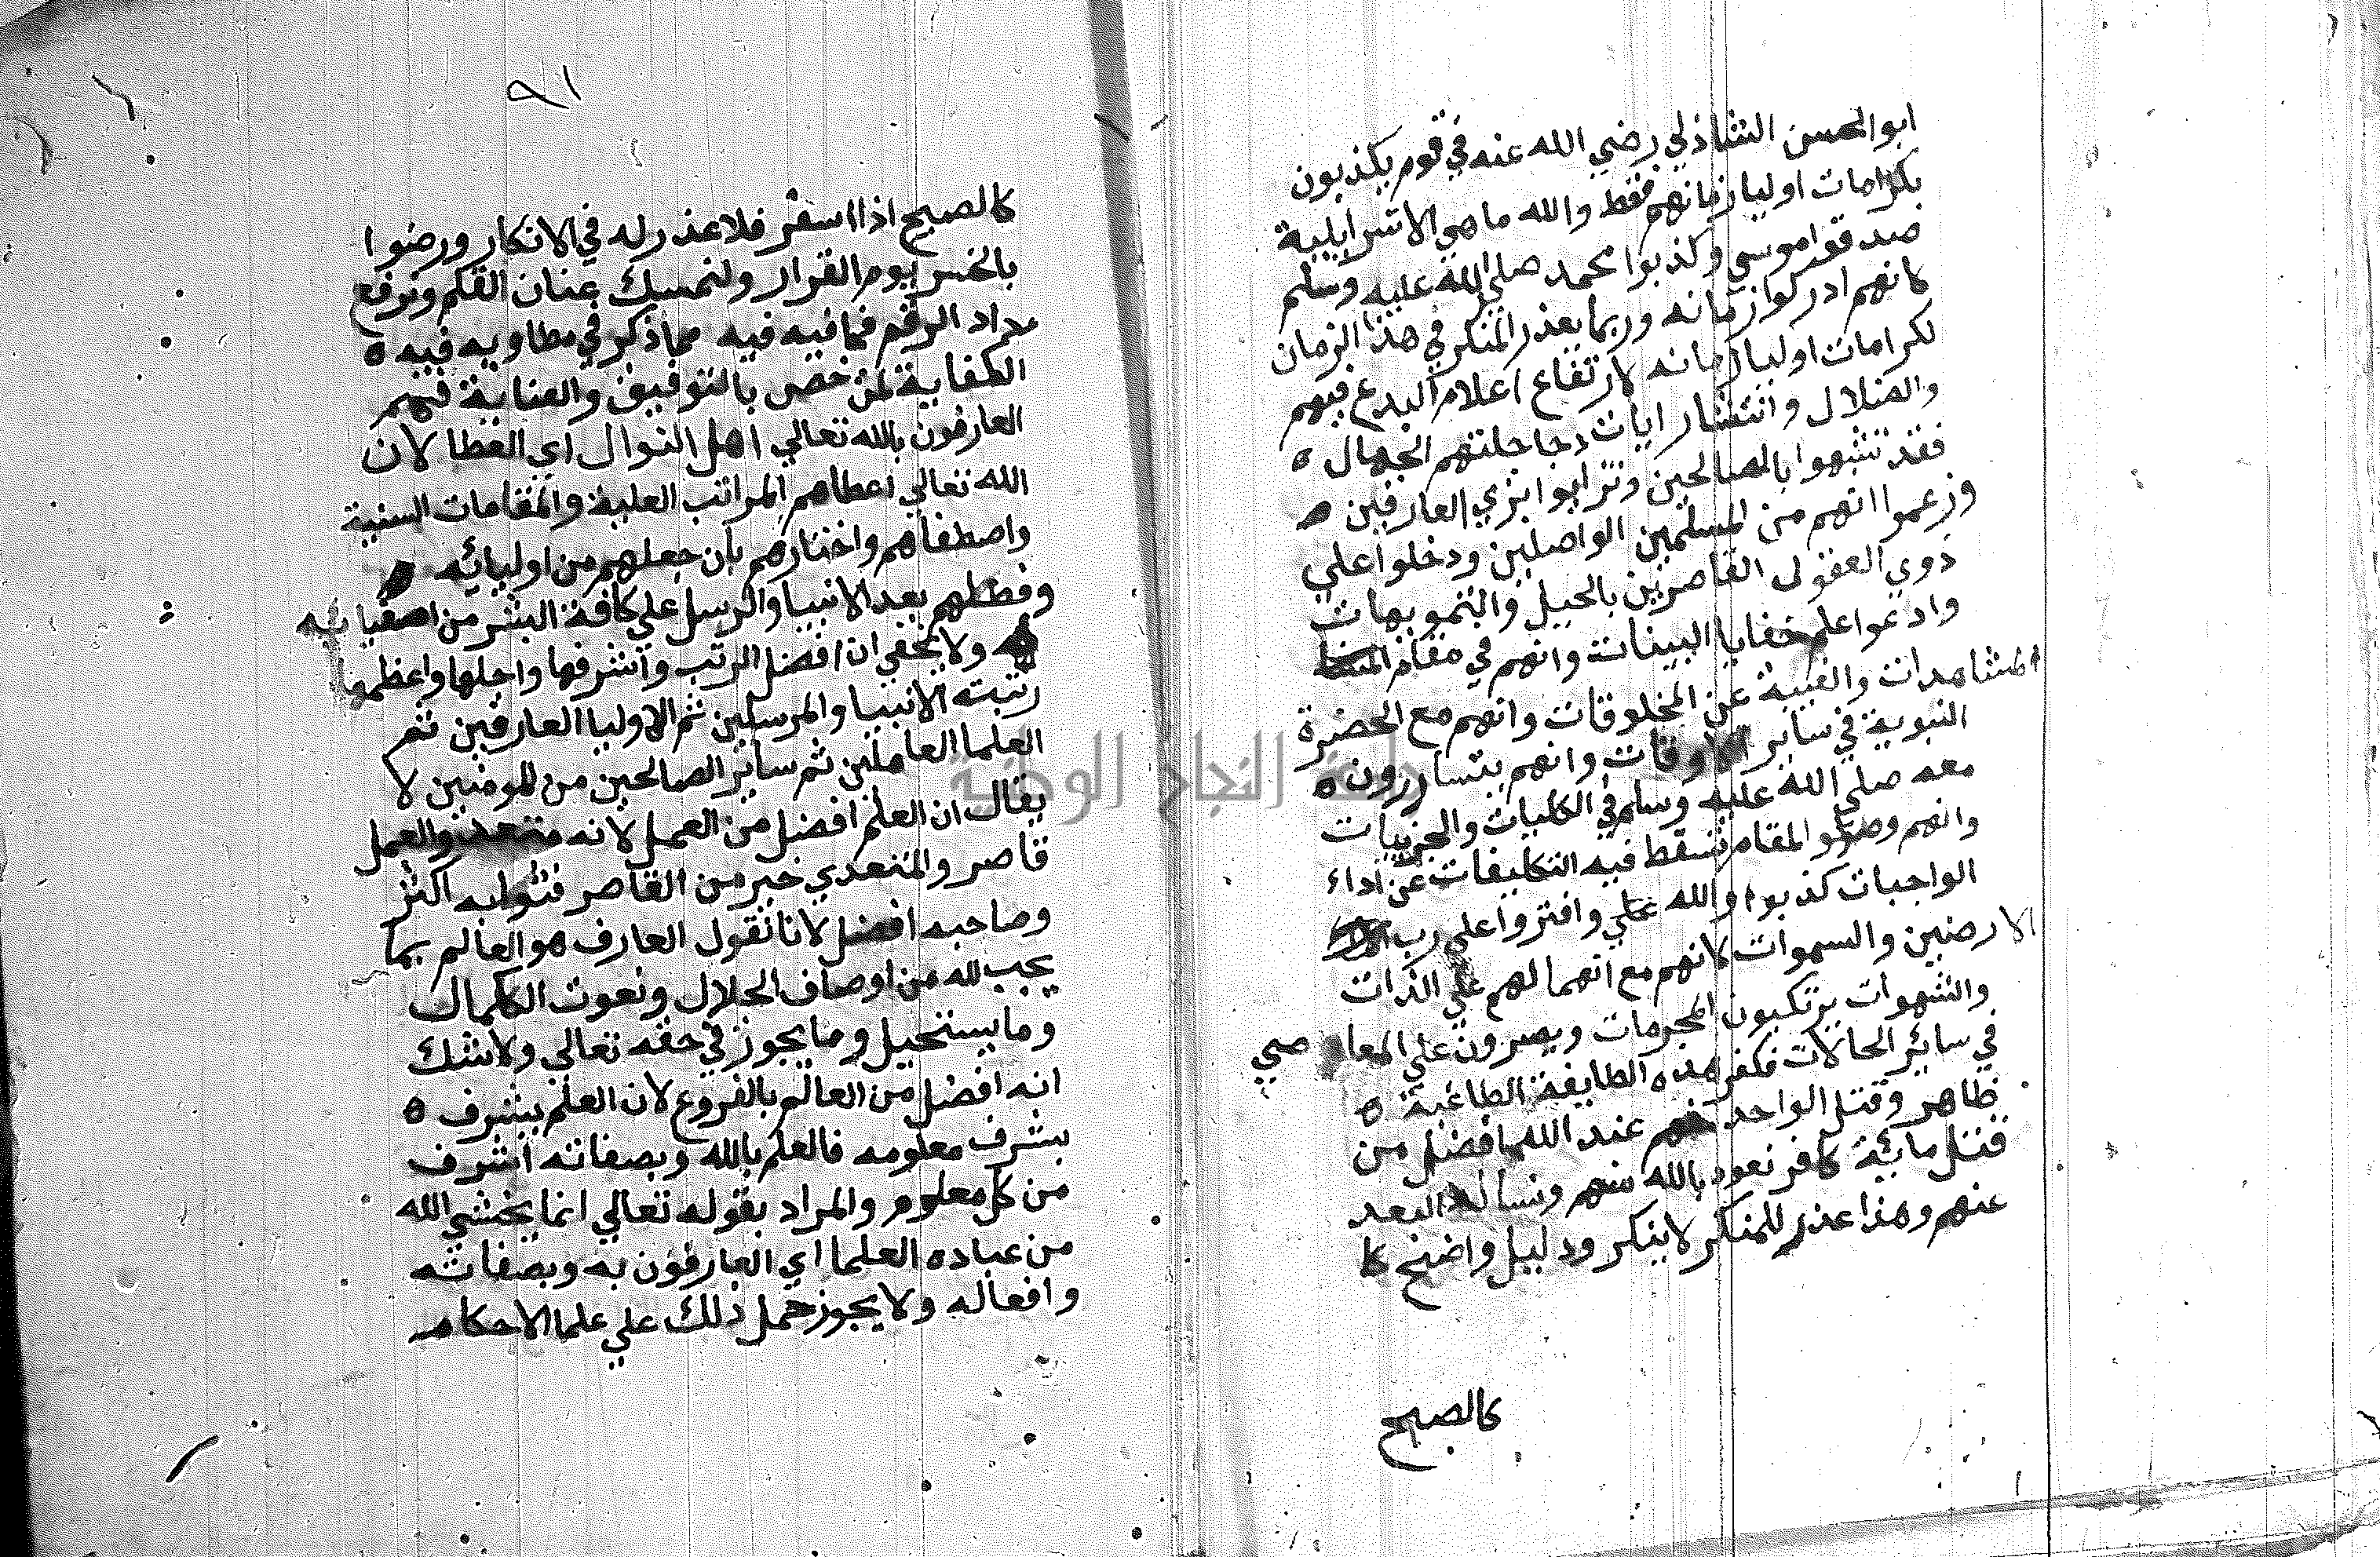 ابو الحسن الشاذلي رضي الله عنه في قوم يكذبون
بكرامات اوليا زمانهم فقط والله ما هي الا اسرايلية
صدقوا موسي وكذبوا محمد صلي الله عليه وسلم
كانهم ادركوا زمانه وربما يعذر المنكر في هذا الزمان
لكرامات اوليا زمانه لارتفاع اعلام البدع فيهم
والضلال وانتشار ايات دجاجلتهم الجهال ه
فقد تشبهوا بالصالحين وتزايوا بزي العارفين ه
وزعموا انهم من المسلمين الواصلين ودخلوا علي
ذوي العقول القاصرين بالحيل والتمويهات
وادعوا علم خفايا البينات وانهم في مقام
المشاهدات والغيبة عن المخلوقات وانهم مع الحضرة
النبوية في ساير الاوقات وانهم يتساررون ه
معه صلي الله عليه وسلم في الكليات والجزييات
وانهم وصلوا لمقام تسقط فيه التكليفات عن اداء
الواجبات كذبوا والله علي وافتروا علي رب
الارضين والسموات لانهم مع انهمالهم علي الذات
والشهوات يرتكبون المحرمات ويصرون علي المعاصي
في سائر الحالات فكفر هذه الطايفة الطاغية ه
ظاهر وقتل الواحد منهم عند الله افضل من
قتل مائة كافر نعوذ بالله منهم ونساله البعد
عنهم وهذا عذر للمنكر لا ينكر ودليل واضح كا
كالصبح
٩١
كالصبح اذا اسفر فلا عذر له في الانكار ورضوا
بالخسر يوم القرار ولنمسك عنان القلم ونرفع
مداد الرقم فما فيه فيه مما ذكر في مطاويه فيه ه
الكفاية لمن خص بالتوفيق والعناية فهم
العارفون بالله تعالي اهل النوال اي العطا لان
الله تعالي اعطاهم المراتب العلية والمقامات السنية
واصطفاهم واختارهم بان جعلهم من اوليائه ه
وفضلهم بعد الانبيا والرسل علي كافة البشر من اصفيائه
ولا يخفي ان افضل الرتب واشرفها واجلها واعظمها
رتبة الانبيا والمرسلين ثم الاوليا العارفين ثم
العلما العاملين ثم سائر الصالحين من المومنين لا
يقال ان العلم افضل من العمل لانه متعد والعمل
قاصر والمتعدي خير من القاصر فثوابه اكثر
وصاحبه افضل لانا نقول العارف هو العالم بما
يجب لله من اوصاف الجلال ونعوت الكمال
وما يستحيل وما يجوز في حقه تعالي ولا شك
انه افضل من العالم بالفروع لان العلم يشرف ه
بشرف معلومه فالعلم بالله وبصفاته اشرف
من كل معلوم والمراد بقوله تعالي انما يخشي الله
من عباده العلما اي العارفون به وبصفاته
وافعاله ولا يجوز حمل ذلك علي علما الاحكام
جامعة النجاح الوطنية